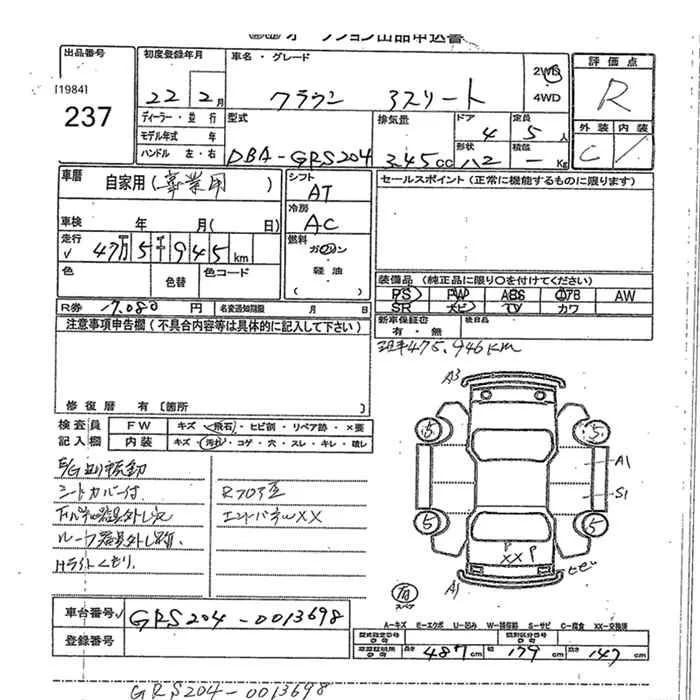 オークション出品申込書
出品番号
[1984]
237
初度登録年月
22 2月
車名・グレード
クラウン アスリート
2WD
4WD
評価点
R
外装 内装
C
ディーラー・並行
モデル年式 年
ハンドル 左・右
型式
DBA-GRS204
排気量
3.45cc
ドア 4
形状 ハ2
定員 5人
積載 - Kg
車歴
自家用(事業用)
車検 年 月( 日)
走行
47万5千945km
色
色替
色コード
シフト
AT
冷房
AC
燃料
ガソリン
軽油
( )
セールスポイント(正常に機能するものに限ります)
装備品(純正品に限り○を付けてください)
PS PW ABS AW
SR ナビ TV カワ
新車保証書
有・無
後日品
R券 17,080円 名変通知期限 月 日
注意事項申告欄(不具合内容等は具体的に記入して下さい)
475,946km
修復歴 有(箇所
検査員
記入欄
FW キズ・飛石・ヒビ割・リペア跡・×要
内装 キズ・汚れ・コゲ・穴・スレ・キレ・破レ
シートカバー付
ルーフ
Hライトくもり
エンドパネルXX
A3
5 5
A1
S1
5 5
P XX P
ヒビ
A1
有
スペア
車台番号
GRS204-0013698
登録番号
A-キズ E-エクボ U-凹み W-補修跡 S-サビ C-腐食 XX-交換済
型式指定番号
類別区分番号
長さ 487cm 幅 179cm 高さ 147cm
GRS204-0013698